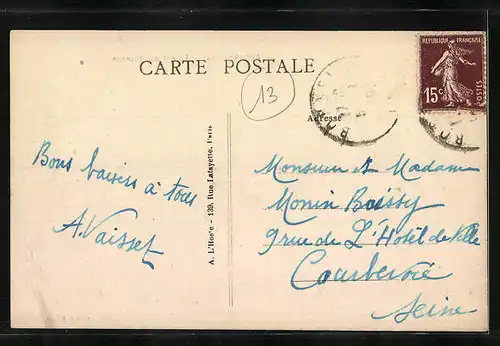 CARTE POSTALE
13
RÉPUBLIQUE FRANÇAISE
15c
POSTES
Adresse
Bons baisers à tous
A. Vaisset
A. L'Hoste - 139, Rue Lafayette, Paris
Monsieur et Madame
Monin Boissy
9 rue de L'Hotel de Ville
Courbevoie
Seine